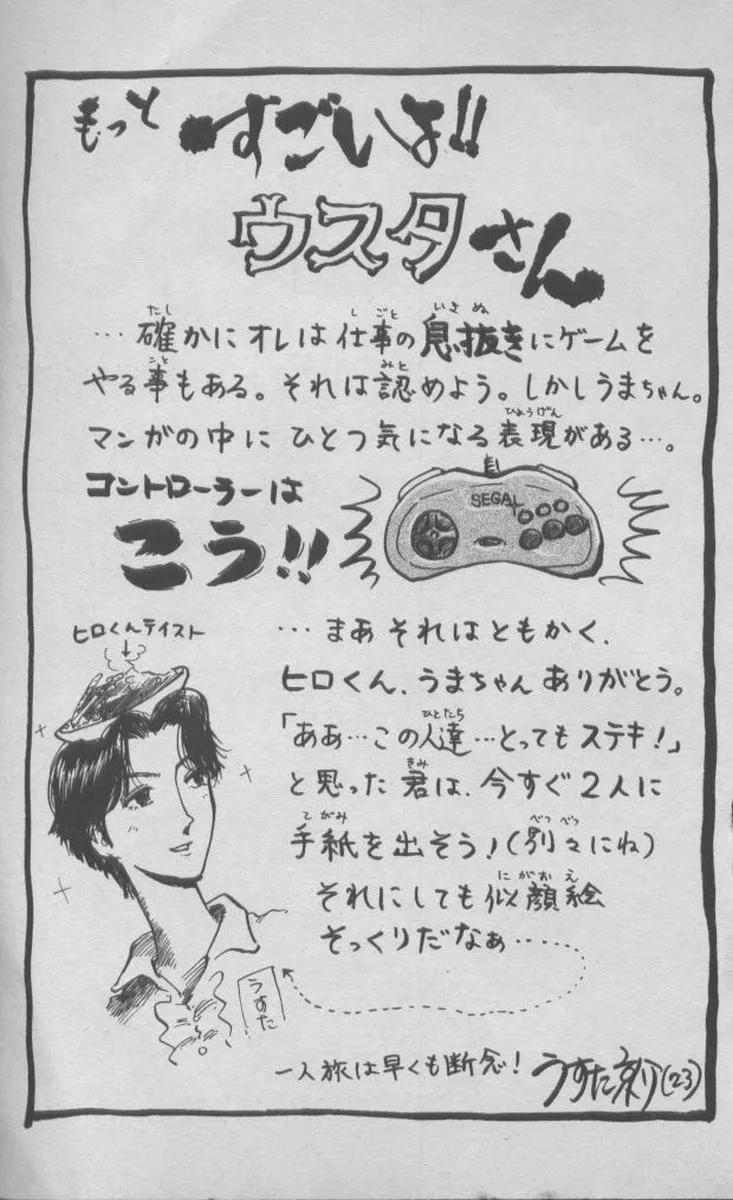 もっと すごいよ!!
ウスタさん
…確かにオレは仕事の息抜きにゲームを
やる事もある。それは認めよう。しかしうまちゃん。
マンガの中にひとつ気になる表現がある…。
コントローラーは
こう!!
SEGA
ヒロくんテイスト
…まあそれはともかく、
ヒロくん、うまちゃんありがとう。
「ああ…この人達…とってもステキ!」
と思った君は、今すぐ2人に
手紙を出そう!(別々にね)
それにしても似顔絵
そっくりだなぁ…
うすた
一人旅は早くも断念! うすた京介(23)